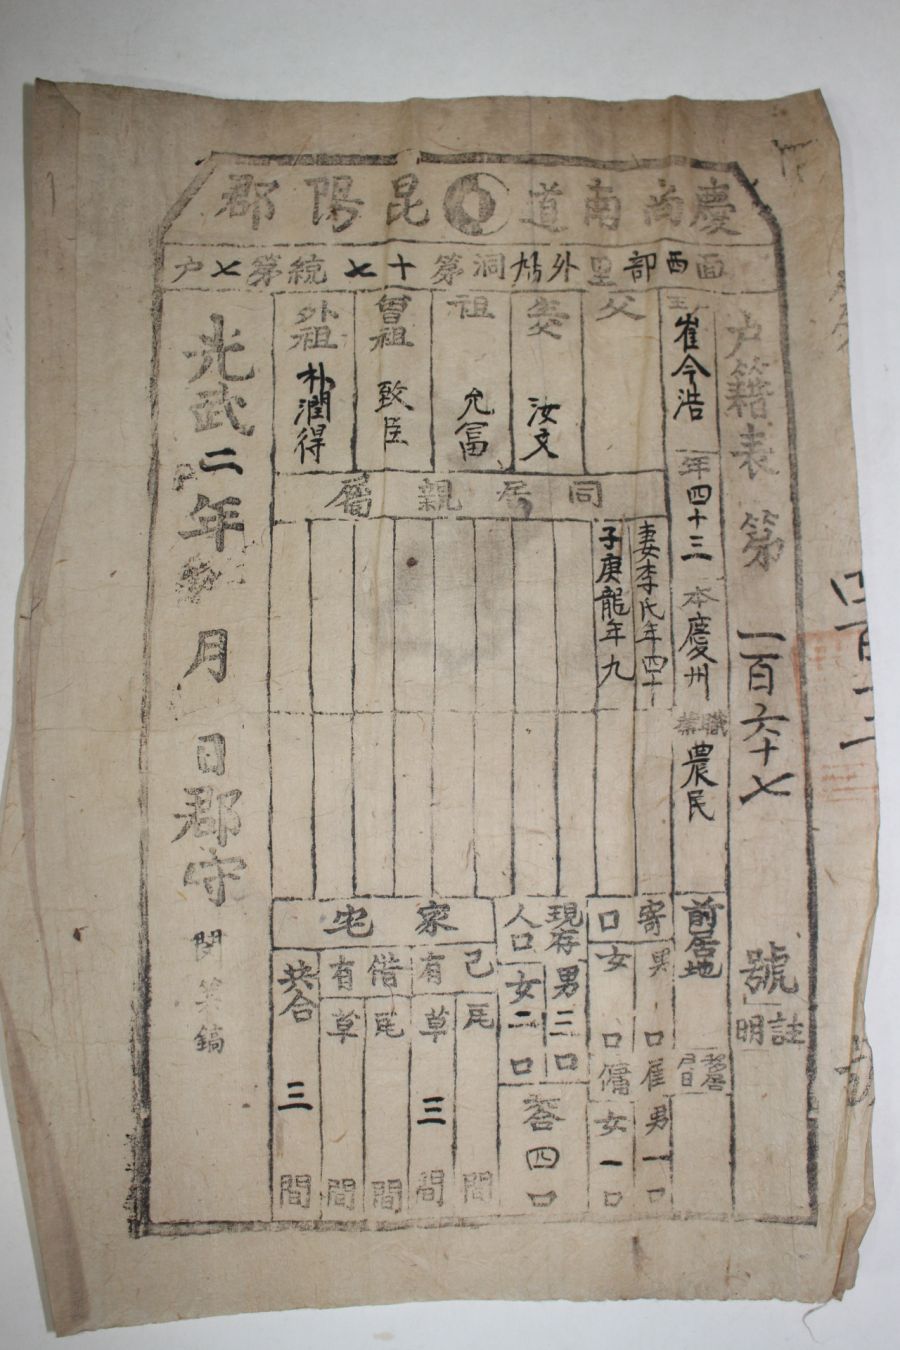 慶尚南道 昆陽郡
面西部里外 洞第十七統第七户
户籍表 第一百六十七號
註明
主
崔今浩
年四十三
本慶州
職業
農民
前居地
移居月日
父
生父 汝文
祖 允富
曾祖 致臣
外祖 朴潤得
同居親屬
妻李氏年四十
子庚龍年九
寄口
男 口
女 口
雇男一口
傭女一口
現存人口
男三口
女二口
共合四口
家宅
己有
瓦 間
草 三間
借有
瓦 間
草 間
共合 三間
光武二年 月 日郡守
四百十二